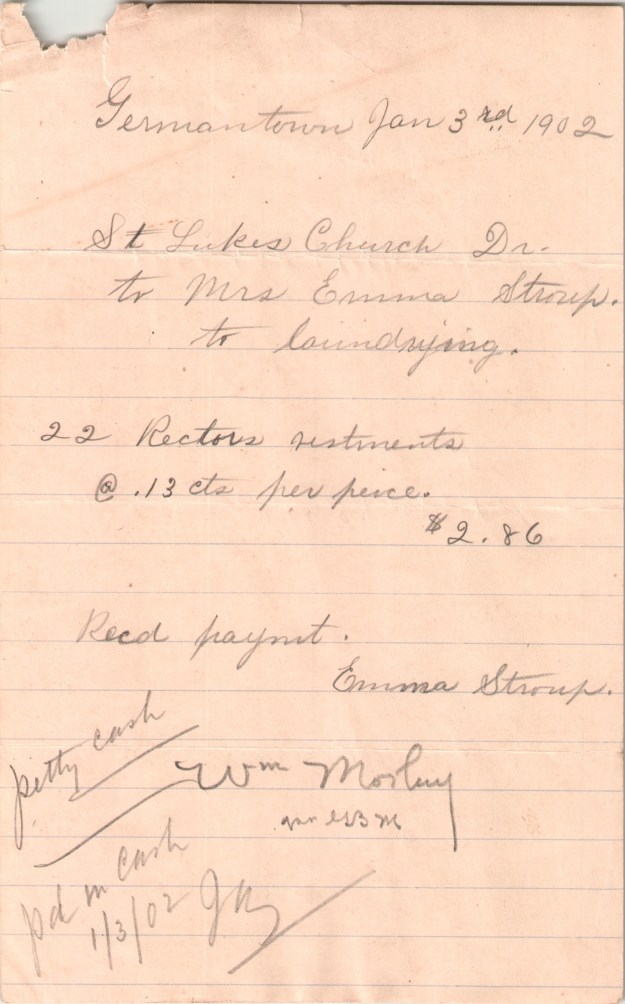 Germantown Jan 3rd 1902
St Lukes Church Dr.
to Mrs Emma Stroup.
to laundrying.
22 Rectors vestments
@ .13 cts per peice.
$2.86
Recd paymt.
Emma Stroup.
petty cash
Wm Morley
pd in cash
1/3/02